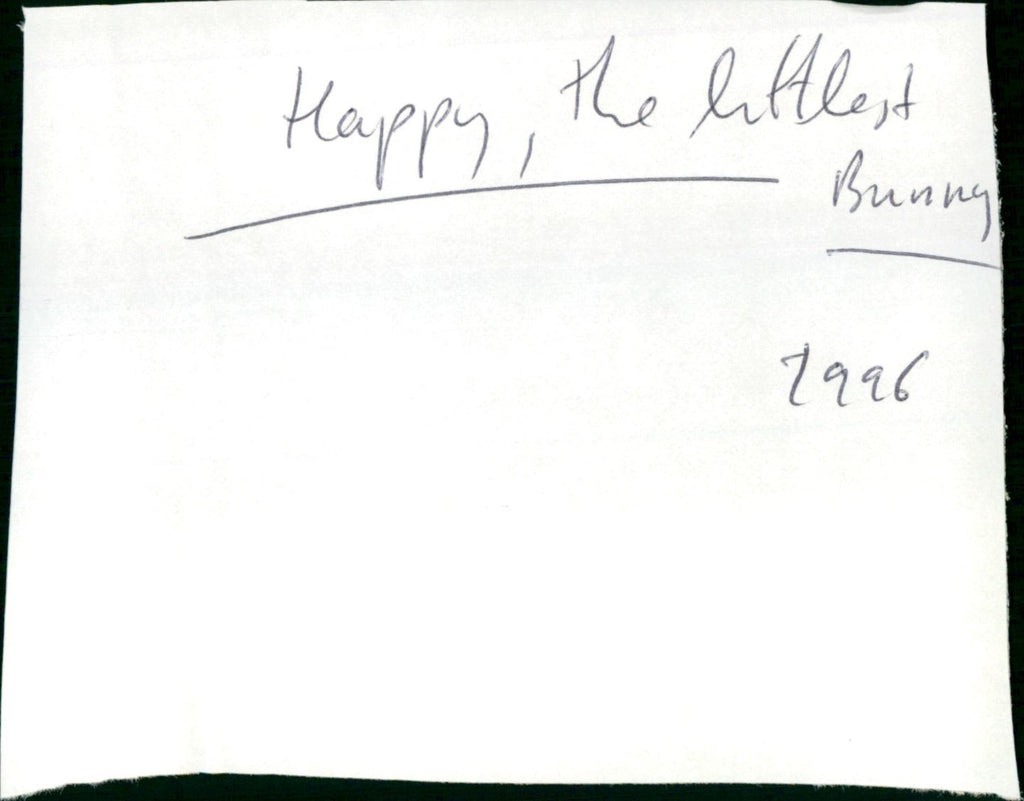 Happy, the littlest
Bunny
1996